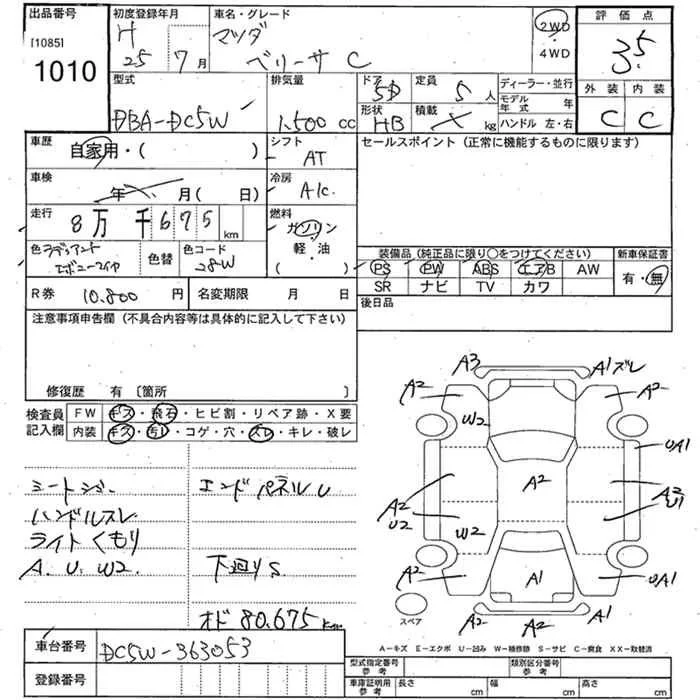 出品番号 初度登録年月 車名・グレード 評価点
[1085] H マツダ 2WD
1010 25年7月 ベリーサ C 4WD 3.5
外装 内装
C C
型式 排気量 ドア 5D 定員 5人 ディーラー・並行
DBA-DC5W 1,500cc 形状 HB 積載 kg モデル年式 年
ハンドル 左・右
車歴 自家用・( ) シフト AT セールスポイント (正常に機能するものに限ります)
車検 年 月( 日) 冷房 A/C
走行 8万 千675km 燃料 ガソリン
軽・油
( )
色 エボニーマイカ 色替 色コード 28W
装備品 (純正品に限り○をつけてください) 新車保証書
PS PW ABS エアB AW 有・無
SR ナビ TV カワ
R券 10.800円 名変期限 月 日 後日品
注意事項申告欄 (不具合内容等は具体的に記入して下さい)
修復歴 有 〔箇所 〕
検査員記入欄 FW キズ・飛石・ヒビ割・リペア跡・X要
内装 キズ・汚レ・コゲ・穴・スレ・キレ・破レ
エンドパネルU
ハンドルスレ
ライトくもり
A. U. W2. 下廻りS
オド 80.675km
A3 A1ズレ
A2 A2
W2
UA1
A2 A2 A2
U2 U1
W2
A2 UA1
A1
A2 A2 A1
スペア
A-キズ E-エクボ U-凹み W-補修跡 S-サビ C-腐食 XX-取替済
車台番号 DC5W-363053
登録番号
型式指定番号 参考 類別区分番号 参考
車庫証明用 参考 長さ cm 幅 cm 高さ cm